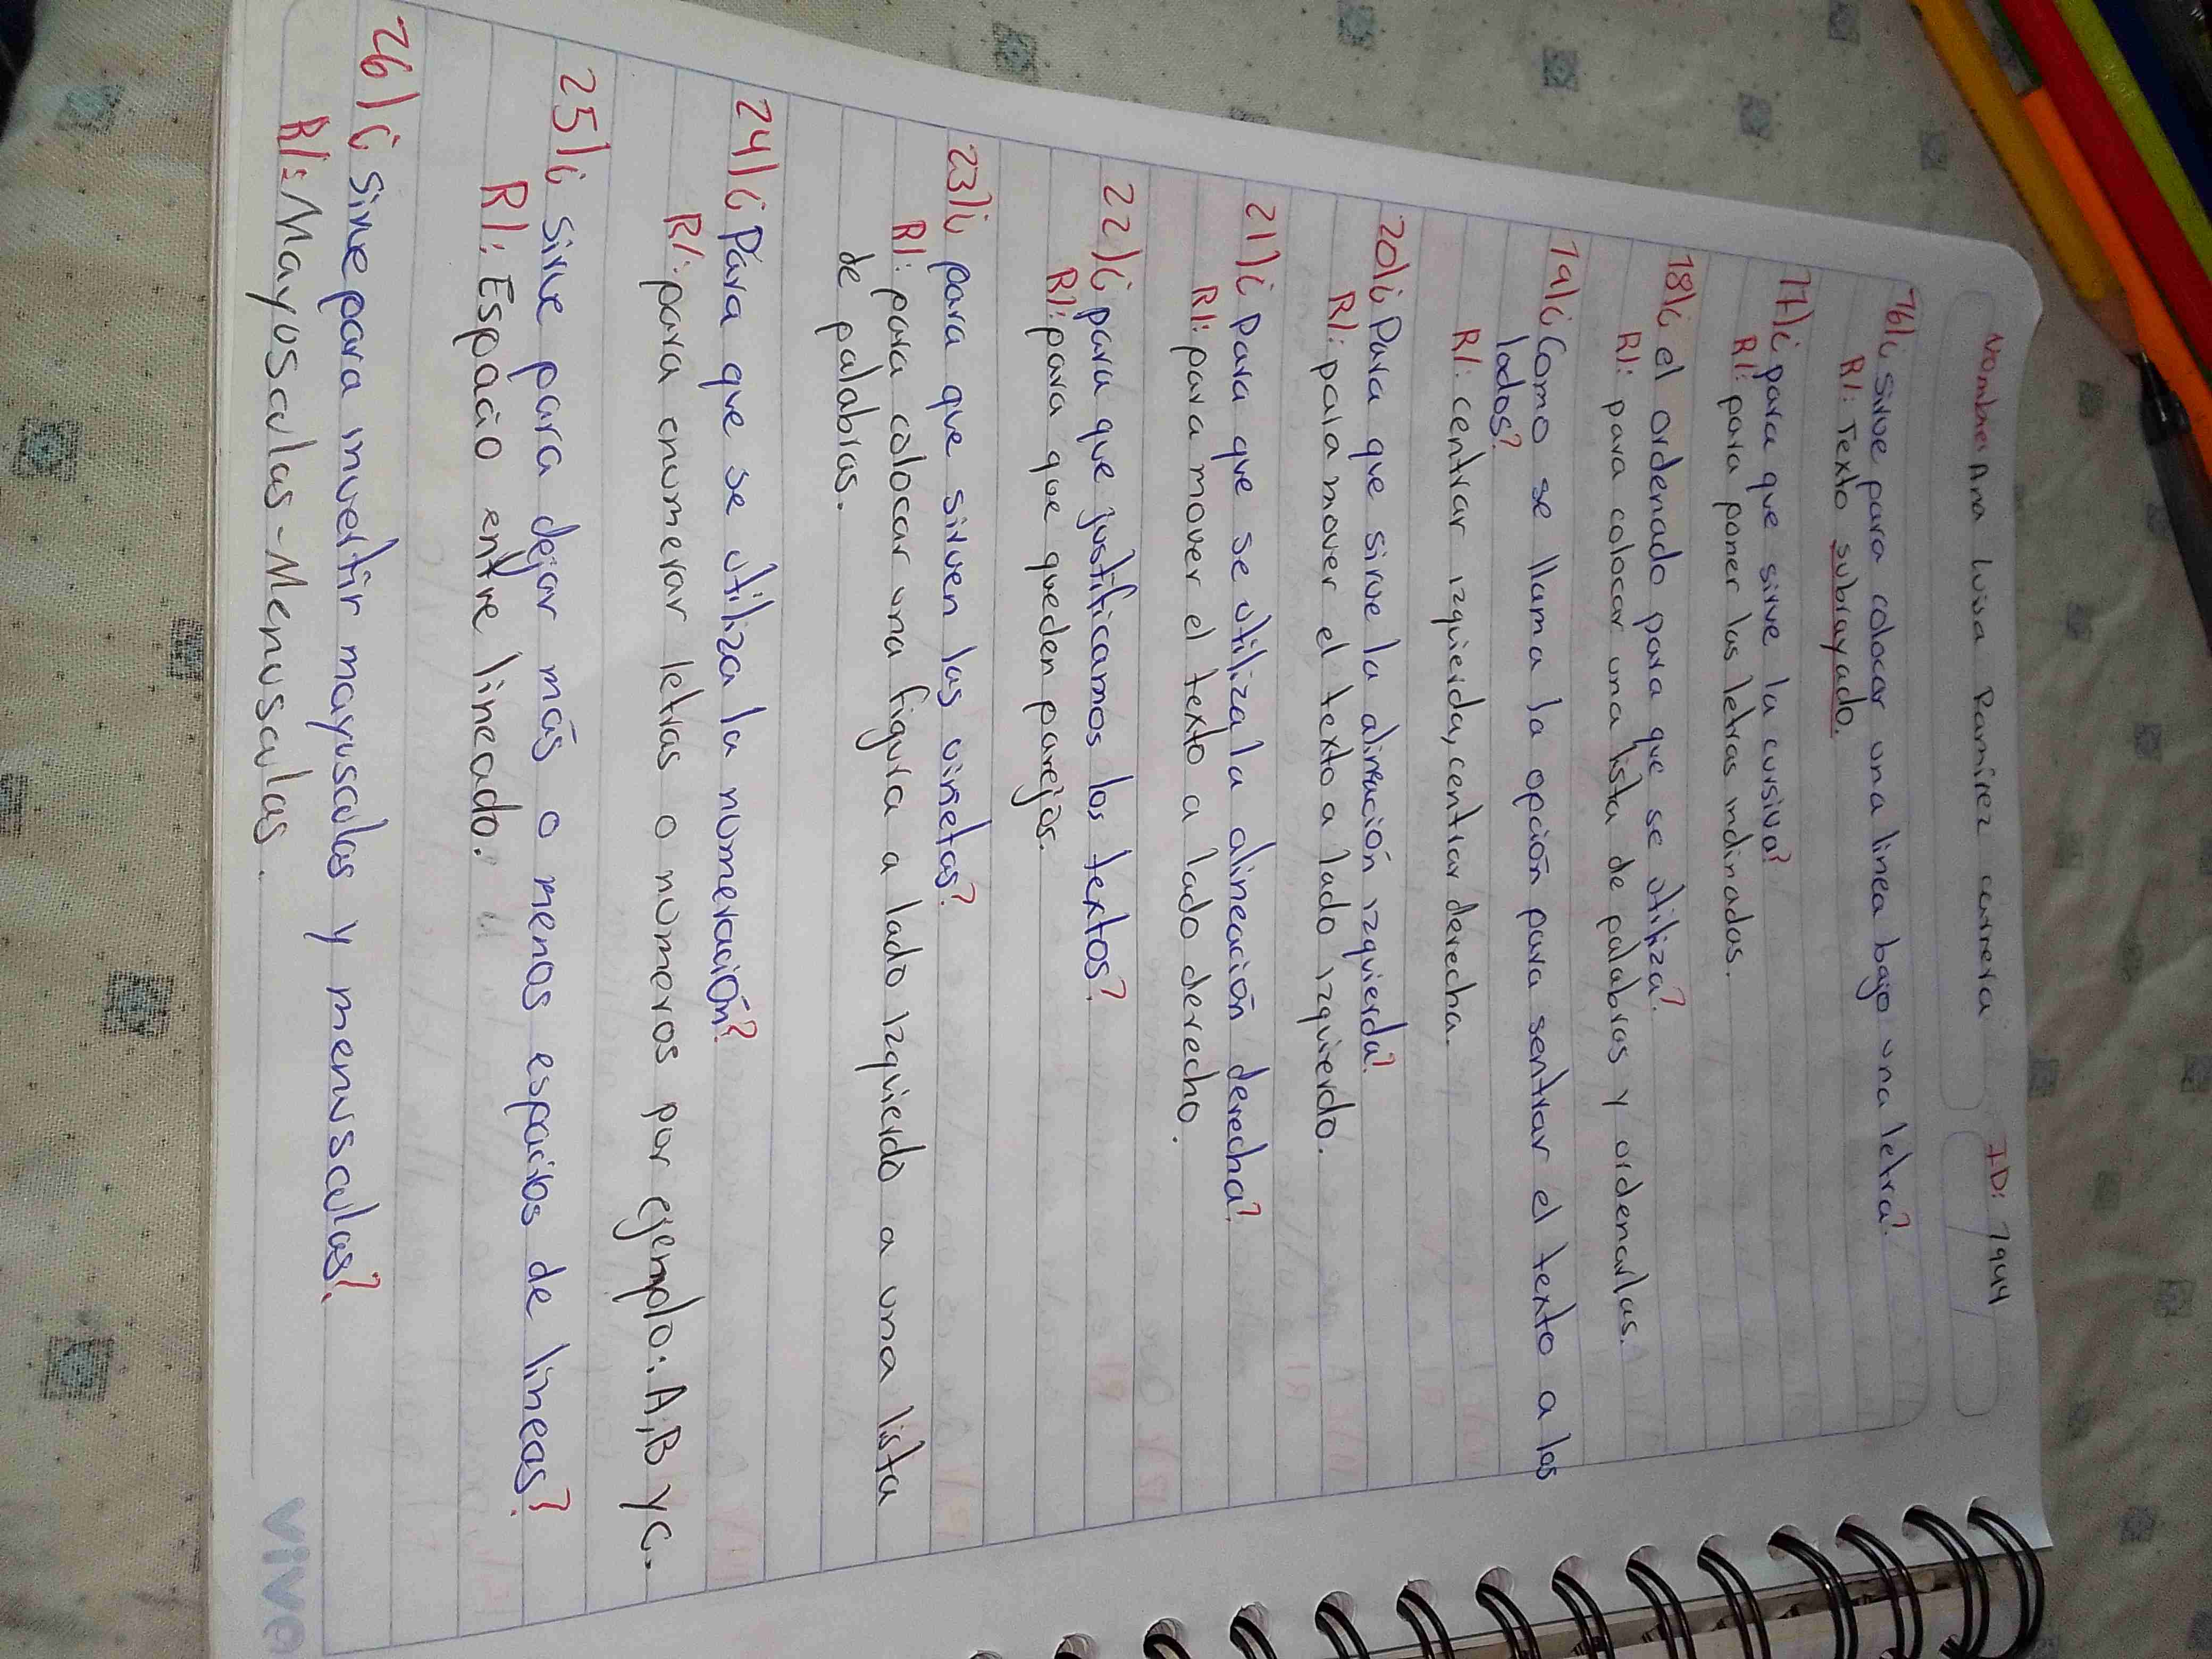 Nombre: Ana Luisa Ramírez carrera ID: 1944
16/¿sirve para colocar una linea bajo una letra?
R/: Texto subrayado.
17/¿para que sirve la cursiva?
R/: para poner las letras inclinados.
18/¿el ordenado para que se utiliza?
R/: para colocar una lista de palabras y ordenarlas.
19/¿Como se llama la opción para sentrar el texto a los
lados?
R/: centrar izquierda, centrar derecha.
20/¿Para que sirve la alineación izquierda?
R/: para mover el texto a lado izquierdo.
21/¿Para que se utiliza la alineación derecha?
R/: para mover el texto a lado derecho.
22/¿para que justificamos los textos?
R/: para que queden parejos.
23/¿para que sirven las viñetas?
R/: para colocar una figura a lado izquierdo a una lista
de palabras.
24/¿Para que se utiliza la numeración?
R/: para enumerar letras o numeros por ejemplo: A,B y C.
25/¿sirve para dejar más o menos espacios de lineas?
R/: Espacio entre lineado.
26/¿sirve para invertir mayusculas y menusculas?
R/: Mayusculas-Menusculas.
vivo